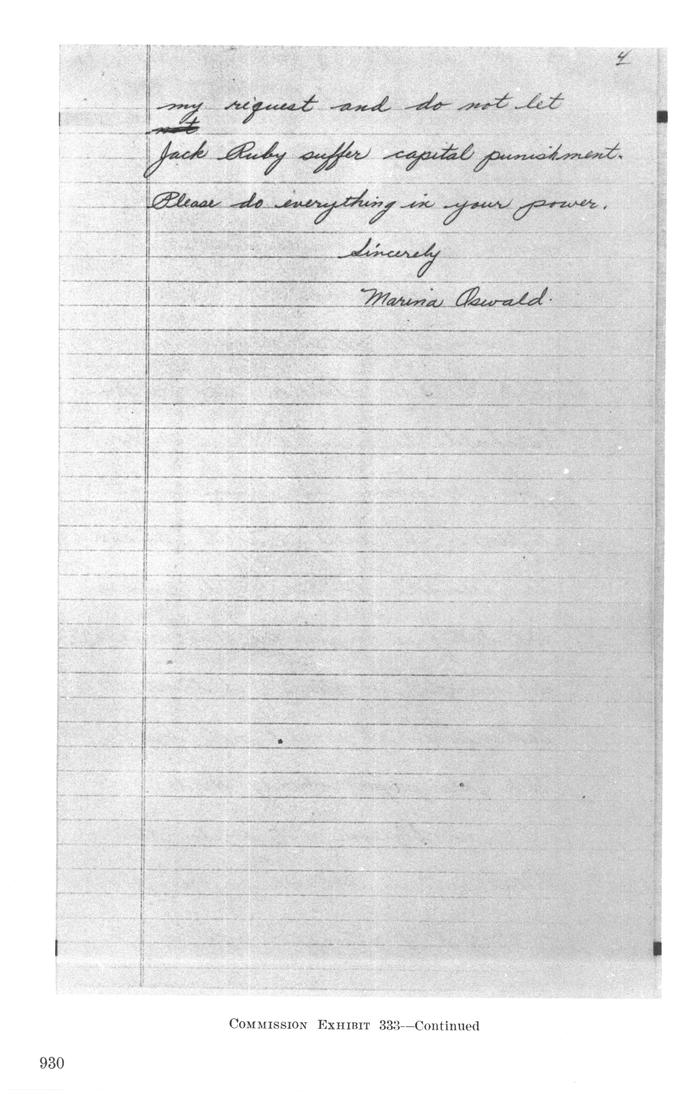 4
my request and do not let
not
Jack Ruby suffer capital punishment.
Please do everything in your power.
Sincerely
Marina Oswald.
COMMISSION EXHIBIT 333—Continued
930